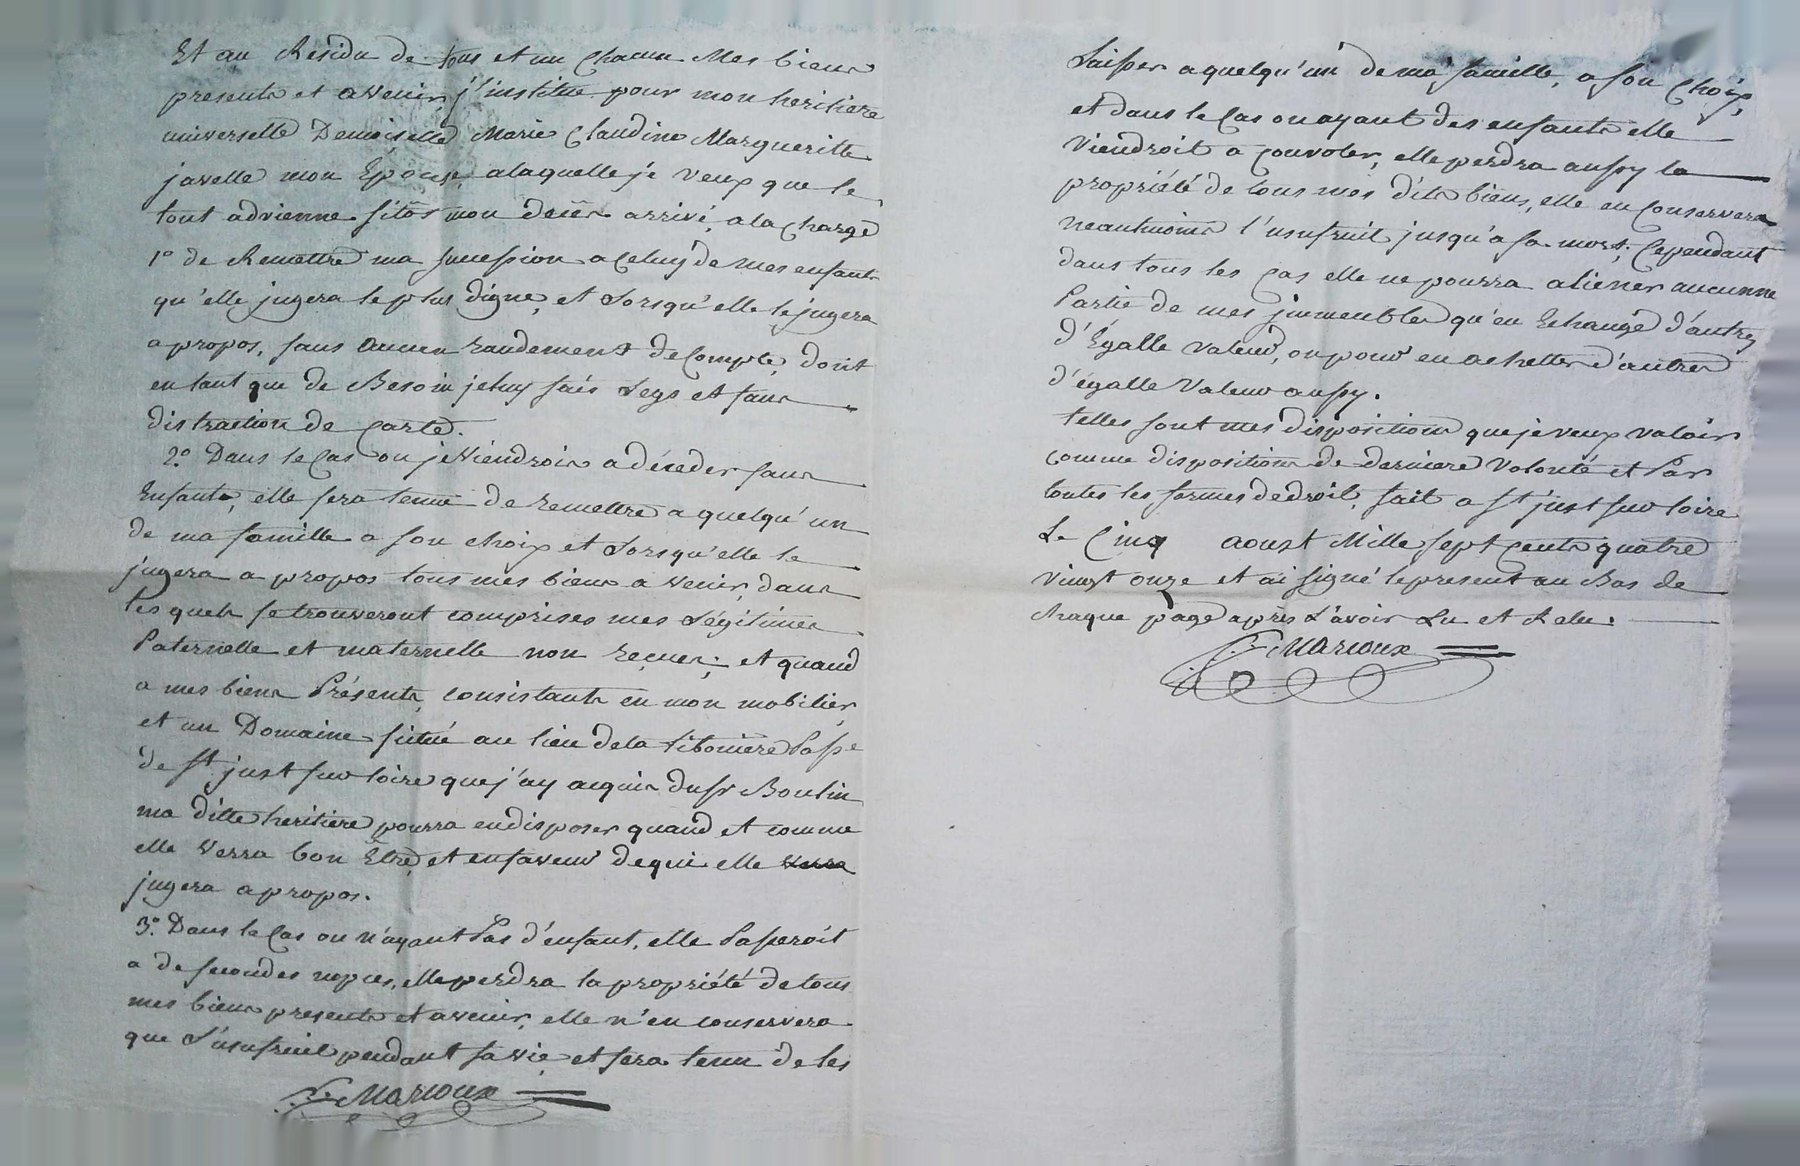 Et au Residu de tous et un chacun Mes biens
presents et avenir, j'institue pour mon heritiere
universelle Demoiselle Marie Claudine Margueritte
javelle mon Epouse, alaquelle je veux que le
tout advienne sitôt mon décès arrivé, a la charge
1º de Remettre ma succession a celuy de mes enfants
qu'elle jugera le plus digne, et Lorsqu'elle le jugera
apropos, sans aucun randement de compte, dont
entant que de Besoin je luy fais Legs et sans
distraction de carte.
2º. Dans le Cas ou je viendrois a décéder sans
Enfants, elle sera tenue de remettre a quelqu'un
de ma famille a son choix et Lorsqu'elle le
jugera a propos tous mes biens a venir, dans
Lesquels se trouveront comprises mes Légitimes
Paternelle et maternelle non reçues; et quand
a mes biens Présents, consistants en mon mobilier,
et un Domaine situé au lieu de la Libonière Passe
de st just sur loire que j'ay acquis du sr Boulin
ma ditte heritiere pourra endisposer quand et comme
elle verra bon Etre, et enfaveur de qui elle verra
jugera apropos.
3º. Dans le Cas ou n'ayant Pas d'enfant, elle Passeroit
a de secondes nopces, elle perdra la propriété de tous
mes biens presents et avenir, elle n'en conservera
que L'usufruit pendant sa vie, et sera tenu de les
F. Marioux
Laisser a quelqu'un de ma famille, a son Choix,
et dans le Cas ou ayant des enfants elle
Viendroit a convoler, elle perdra aussy la
propriété de tous mes dits biens, elle en Conservera
neantmoins l'usufruit jusqu'a sa mort; Cependant
dans tous les cas elle ne pourra aliener aucunne
Partie de mes jmmeubles qu'en Echange d'autres
d'Egalle valeur, ou pour en achetter d'autres
d'égalle Valeur aussy.
telles sont mes dispositions que je veux valoir
comme dispositions de derniere Volonté et Par
toutes les formes de droit, fait a st just sur loire
Le Cinq aoust Mille sept Cents quatre
vingt onze et ai signé le present au Bas de
chaque page après L'avoir Lu et Relu.
F. Marioux